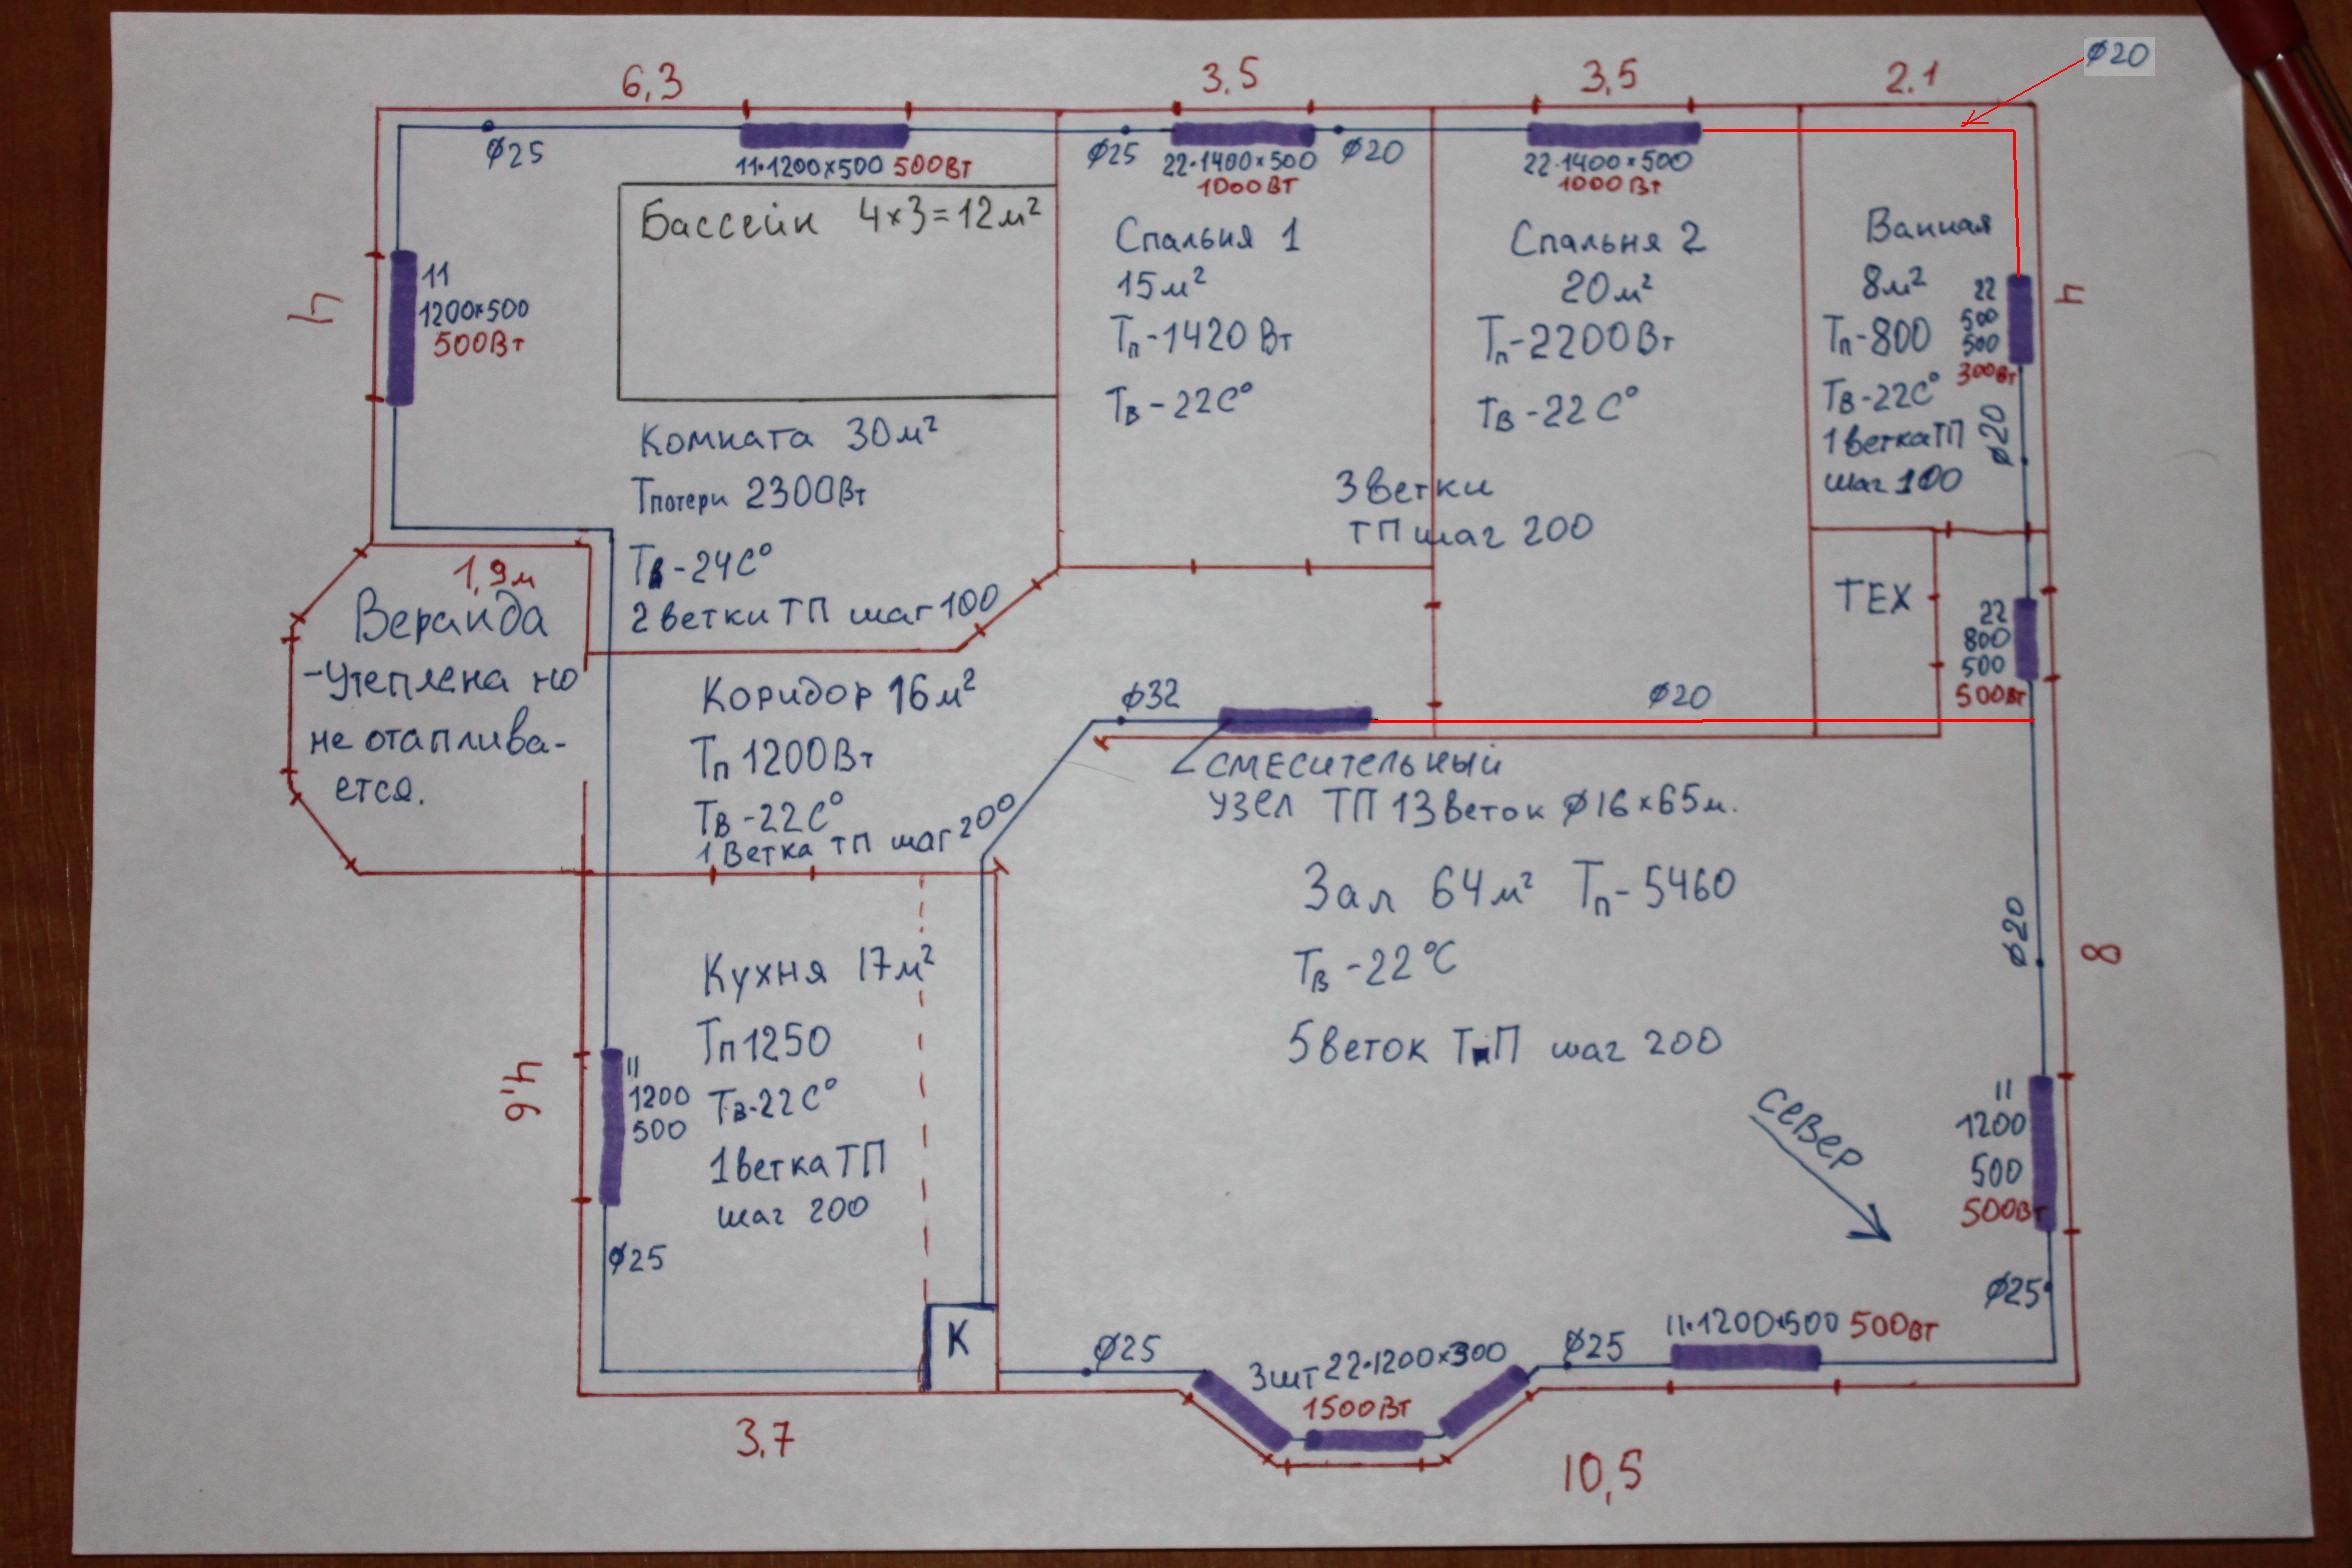 6,3
3,5
3,5
2.1
ø20
ø25
11·1200×500 500Вт
ø25
22·1400×500
1000Вт
ø20
22·1400×500
1000Вт
4
11
1200×500
500Вт
Бассейн 4×3=12м²
Комната 30м²
Тпотери 2300Вт
Тв-24С°
2 ветки ТП шаг 100
Спальня 1
15м²
Тп-1420 Вт
Тв-22С°
Спальня 2
20м²
Тп-2200Вт
Тв-22С°
3 ветки
ТП шаг 200
Ванная
8м²
Тп-800
Тв-22С°
1 ветка ТП
шаг 100
22
500
500
300Вт
ø20
4
ТЕХ
22
800
500
500Вт
1,9м
Веранда
-утеплена но
не отаплива-
ется.
Коридор 16м²
Тп 1200Вт
Тв-22С°
1 Ветка ТП шаг 200
ø32
ø20
СМЕСИТЕЛЬНЫЙ
УЗЕЛ ТП 13 веток ø16×65м.
Зал 64м² Тп-5460
Тв-22°С
5 веток ТП шаг 200
ø20
8
север
11
1200
500
500Вт
ø25
Кухня 17м²
Тп 1250
Тв-22С°
1 ветка ТП
шаг 200
4,6
11
1200
500
ø25
К
ø25
3шт 22·1200×300
1500Вт
ø25
11·1200×500 500Вт
3,7
10,5